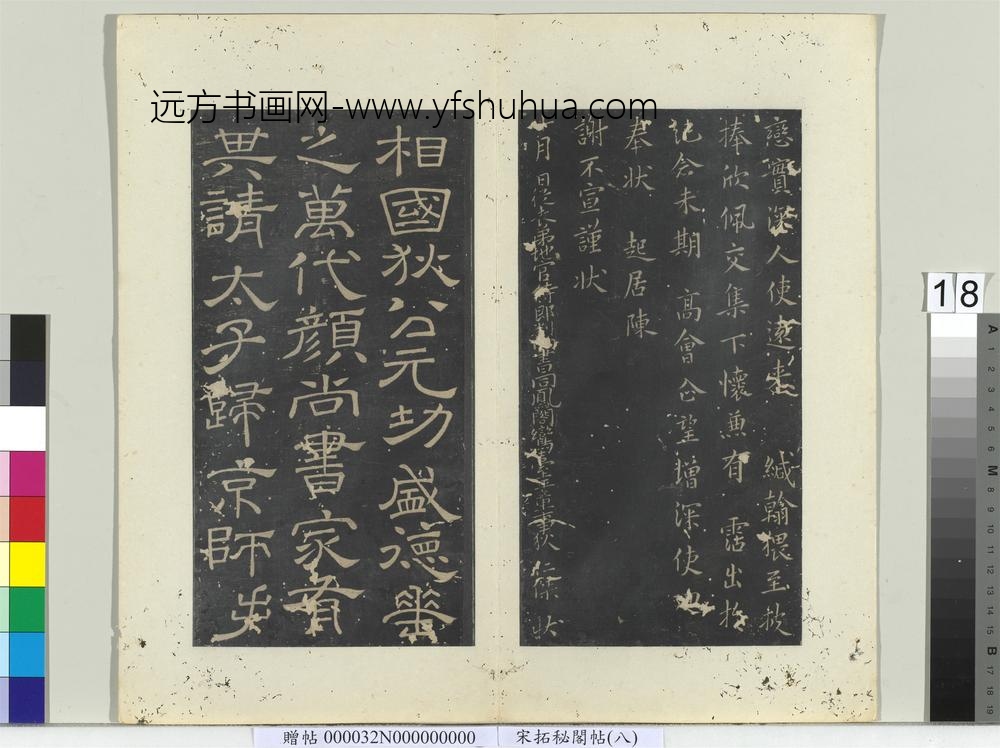 远方书画网-www.yfshuhua.com
戀實深人使遠來 緘翰猥至披
捧欣佩交集下懷無有 霑出於
記念未期 高會企望增深使
奉狀 起居陳
謝不宣謹狀
月 日從表弟地官侍郎 書同鳳閣鸞臺平章事狄 仁傑 狀
相國狄公元功盛德垂
之萬代顏尚書家有
其請太子歸京師
18
贈帖 000032N000000000 宋拓秘閣帖(八)
A 1 2 3 4 5 6 M 8 9 10 11 12 13 14 15 B 17 18 19